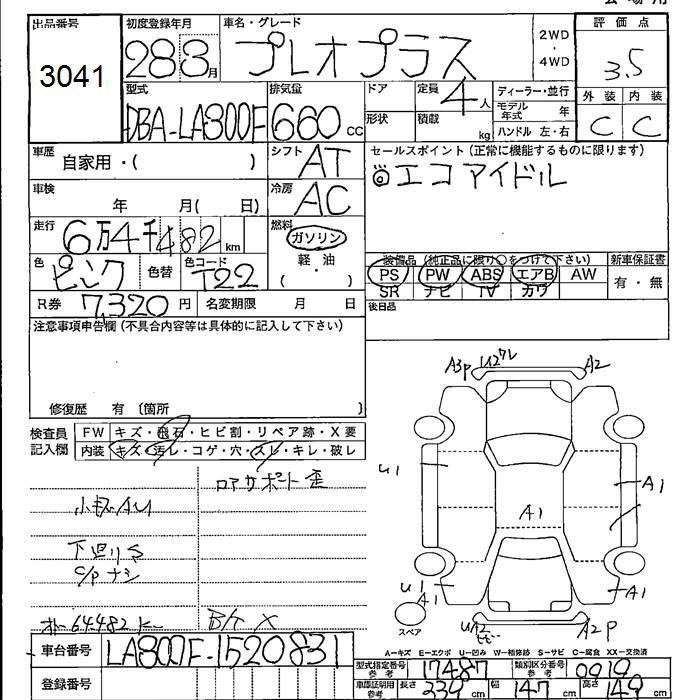 出品番号
3041
初度登録年月
28 3 月
車名・グレード
プレオプラス
2WD
・
4WD
評価点
3.5
外装 内装
C C
型式
DBA-LA300F
排気量
660 CC
ドア
定員
4 人
形状
積載
kg
ディーラー・並行
モデル年式 年
ハンドル 左・右
車歴
自家用・( )
シフト
AT
車検
年 月( 日)
冷房
AC
セールスポイント (正常に機能するものに限ります)
◎エコアイドル
走行
6万4千482 km
燃料
ガソリン
軽・油
( )
色
ピンク
色替
色コード
T22
装備品 (純正品に限り○をつけて下さい)
PS PW ABS エアB AW
SR ナビ TV カワ
新車保証書
有・無
R券 7,320 円
名変期限 月 日
後日品
注意事項申告欄 (不具合内容等は具体的に記入して下さい)
修復歴 有 〔箇所 〕
検査員記入欄
FW キズ・飛石・ヒビ割・リペア跡・X要
内装 キズ・汚レ・コゲ・穴・スレ・キレ・破レ
ロアサポート歪
小キズAU
下廻りS
C/Pナシ
オー64482K
A3P
A2
U1
A1
A1
U1
A1
A1
A2P
スペア
A-キズ E-エクボ U-凹み W-補修跡 S-サビ C-腐食 XX-交換済
車台番号
LA300F-1520831
登録番号
型式指定番号 参考
17487
類別区分番号 参考
0919
車庫証明用 参考
長さ 339 cm
幅 147 cm
高さ 149 cm